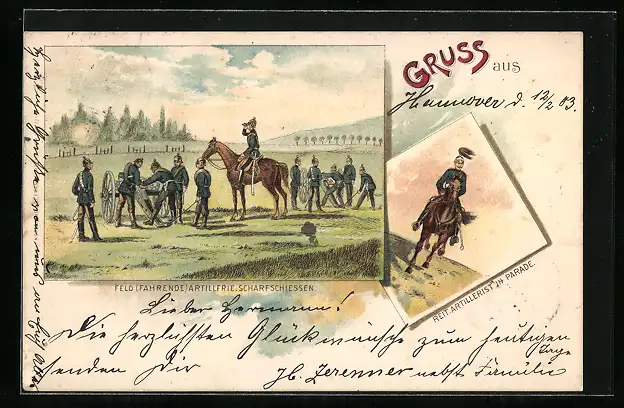 GRUSS aus
Hannover d. 12/2 03.
FELD (FAHRENDE) ARTILLERIE. SCHARFSCHIESSEN.
REIT. ARTILLERIST IN PARADE.
Lieber Hermann!
Die herzlichsten Glückwünsche zum heutigen
Tage
senden Dir Zerenner nebst Familie